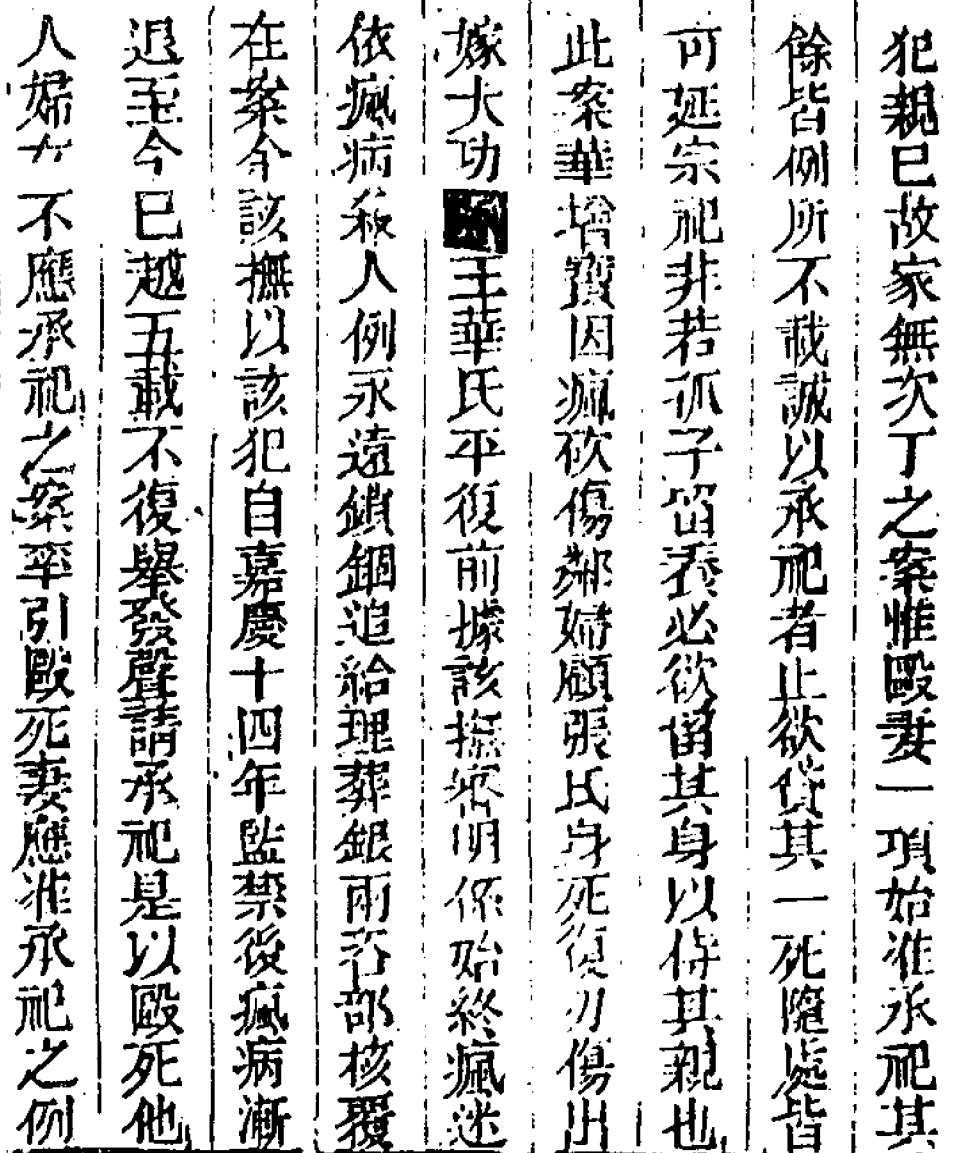 犯親已故家無次丁之案惟毆妻一項始准承祀其
餘皆例所不載誠以承祀者止欲貸其一死隨處皆
可延宗祀非若孤子留養必欲留其身以侍其親也
此案華增寶因瘋砍傷鄰婦顧張氏身死復刃傷出
嫁大功王華氏平復前據該撫咨明係始終瘋迷
依瘋病殺人例永遠鎖錮追給理葬銀兩咨部核覆
在案今該撫以該犯自嘉慶十四年監禁後瘋病漸
退至今已越五載不復舉發聲請承祀是以毆死他
人婦女不應承祀之案率引毆死妻應准承祀之例